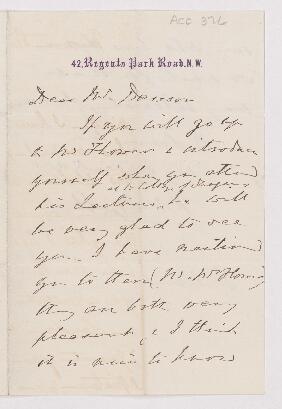 Acc 376
42, Regents Park Road. N.W.
Dear Mr Dawson
If you will go up
to Mr Flower & introduce
yourself when you attend
at the College of Surgeons
his Lectures, he will
be very glad to see
you. I have mentioned
you to them (Mr. Mrs Flower)
they are both very
pleasant, & I think
it is nice to know